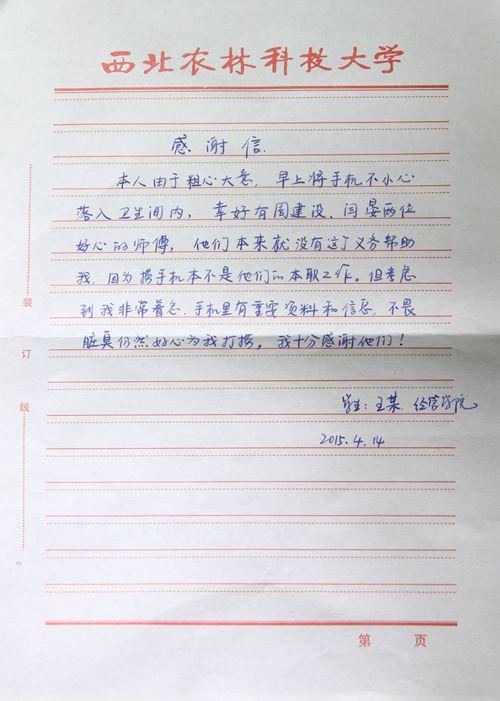 西北农林科技大学
感谢信
本人由于粗心大意，早上将手机不小心
落入卫生间内，幸好有周建设、闫晏两位
好心的师傅，他们本来就没有这个义务帮助
我，因为捞手机本不是他们的本职工作。但考虑
到我非常着急、手机里有重要资料和信息，不畏
脏臭仍然好心为我打捞，我十分感谢他们！
学生：王某．经管学院
2015.4.14
装
订
线
第 页